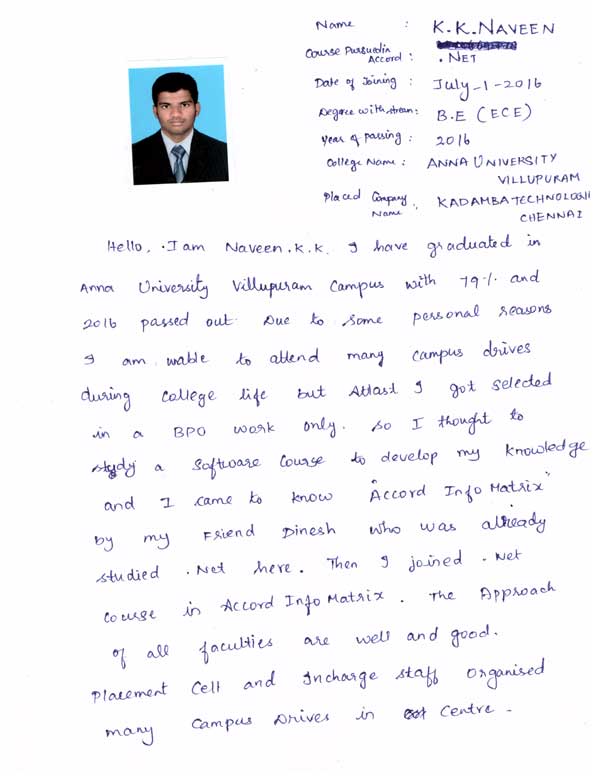 Name : K.K.NAVEEN
Course Pursued in
Accord : .NET
Date of Joining : July-1-2016
Degree with stream : B.E (ECE)
Year of passing : 2016
College Name : ANNA UNIVERSITY
VILLUPURAM
Placed Company
Name : KADAMBA TECHNOLOGII
CHENNAI
Hello, . I am Naveen.K.K. I have graduated in
Anna University Villupuram Campus with 79% and
2016 passed out. Due to some personal reasons
I am unable to attend many campus drives
during college life but Atlast I got selected
in a BPO work only. So I thought to
study a Software Course to develop my knowledge
and I came to know "Accord Info Matrix"
by my Friend Dinesh who was already
studied .Net here. Then I joined .Net
course in Accord Info Matrix. The Approach
of all faculties are well and good.
Placement Cell and Incharge staff Organised
many Campus Drives in Centre.